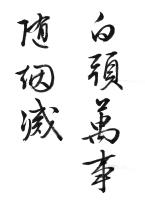 白頭萬事
随烟滅